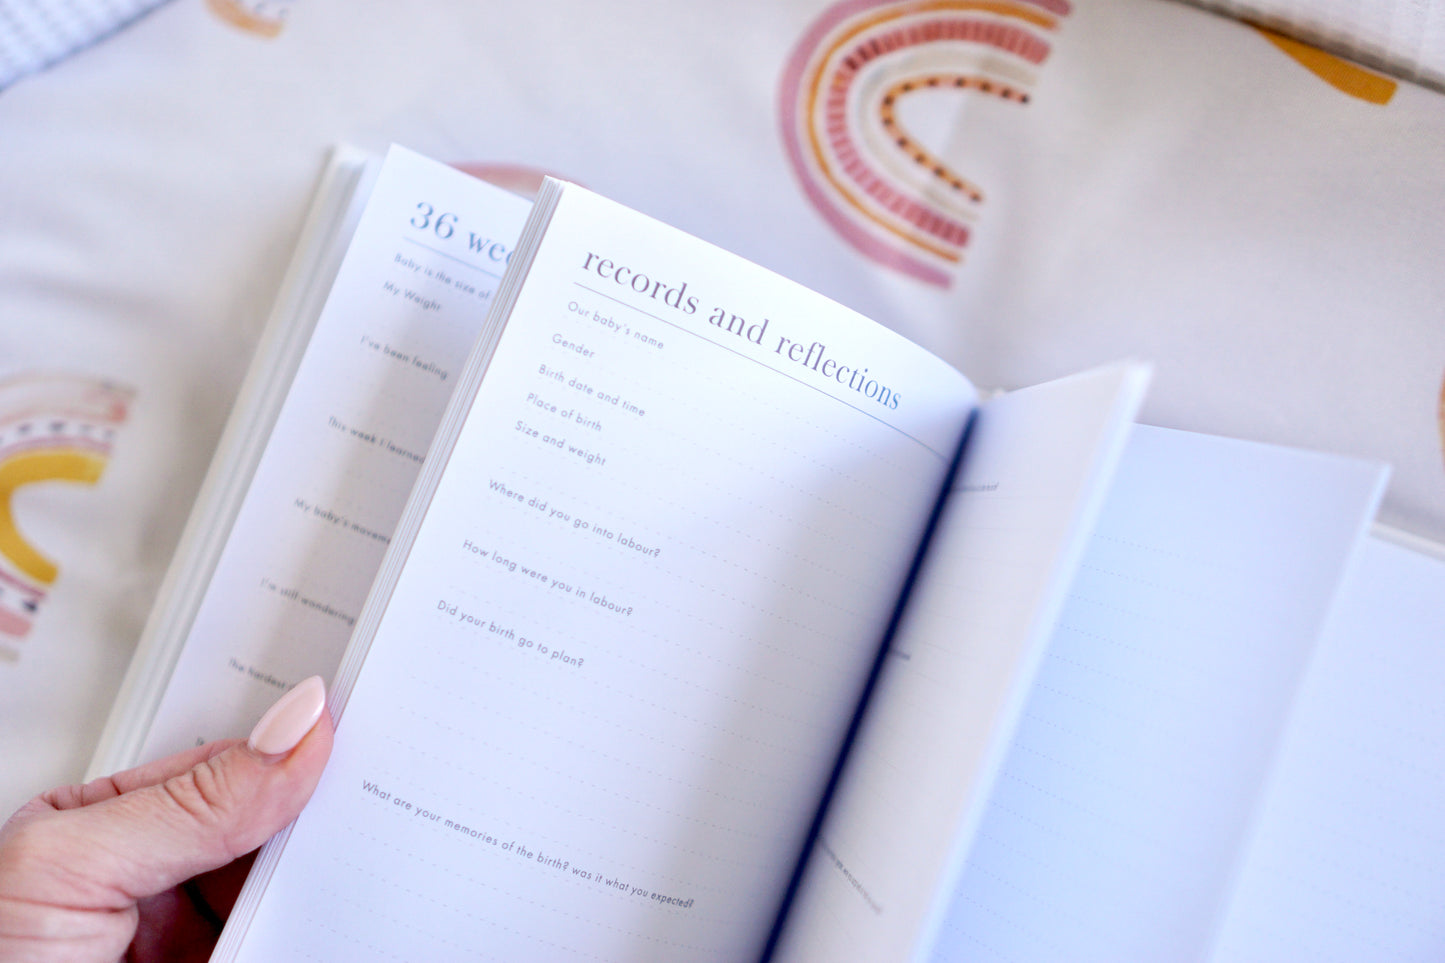 36
Baby is the size of
My Weight
I've been feeling
This week I learned
My baby's
I'm still wondering
The hardest
records and reflections
Our baby's name
Gender
Birth date and time
Place of birth
Size and weight
Where did you go into labour?
How long were you in labour?
Did your birth go to plan?
What are your memories of the birth? was it what you expected?